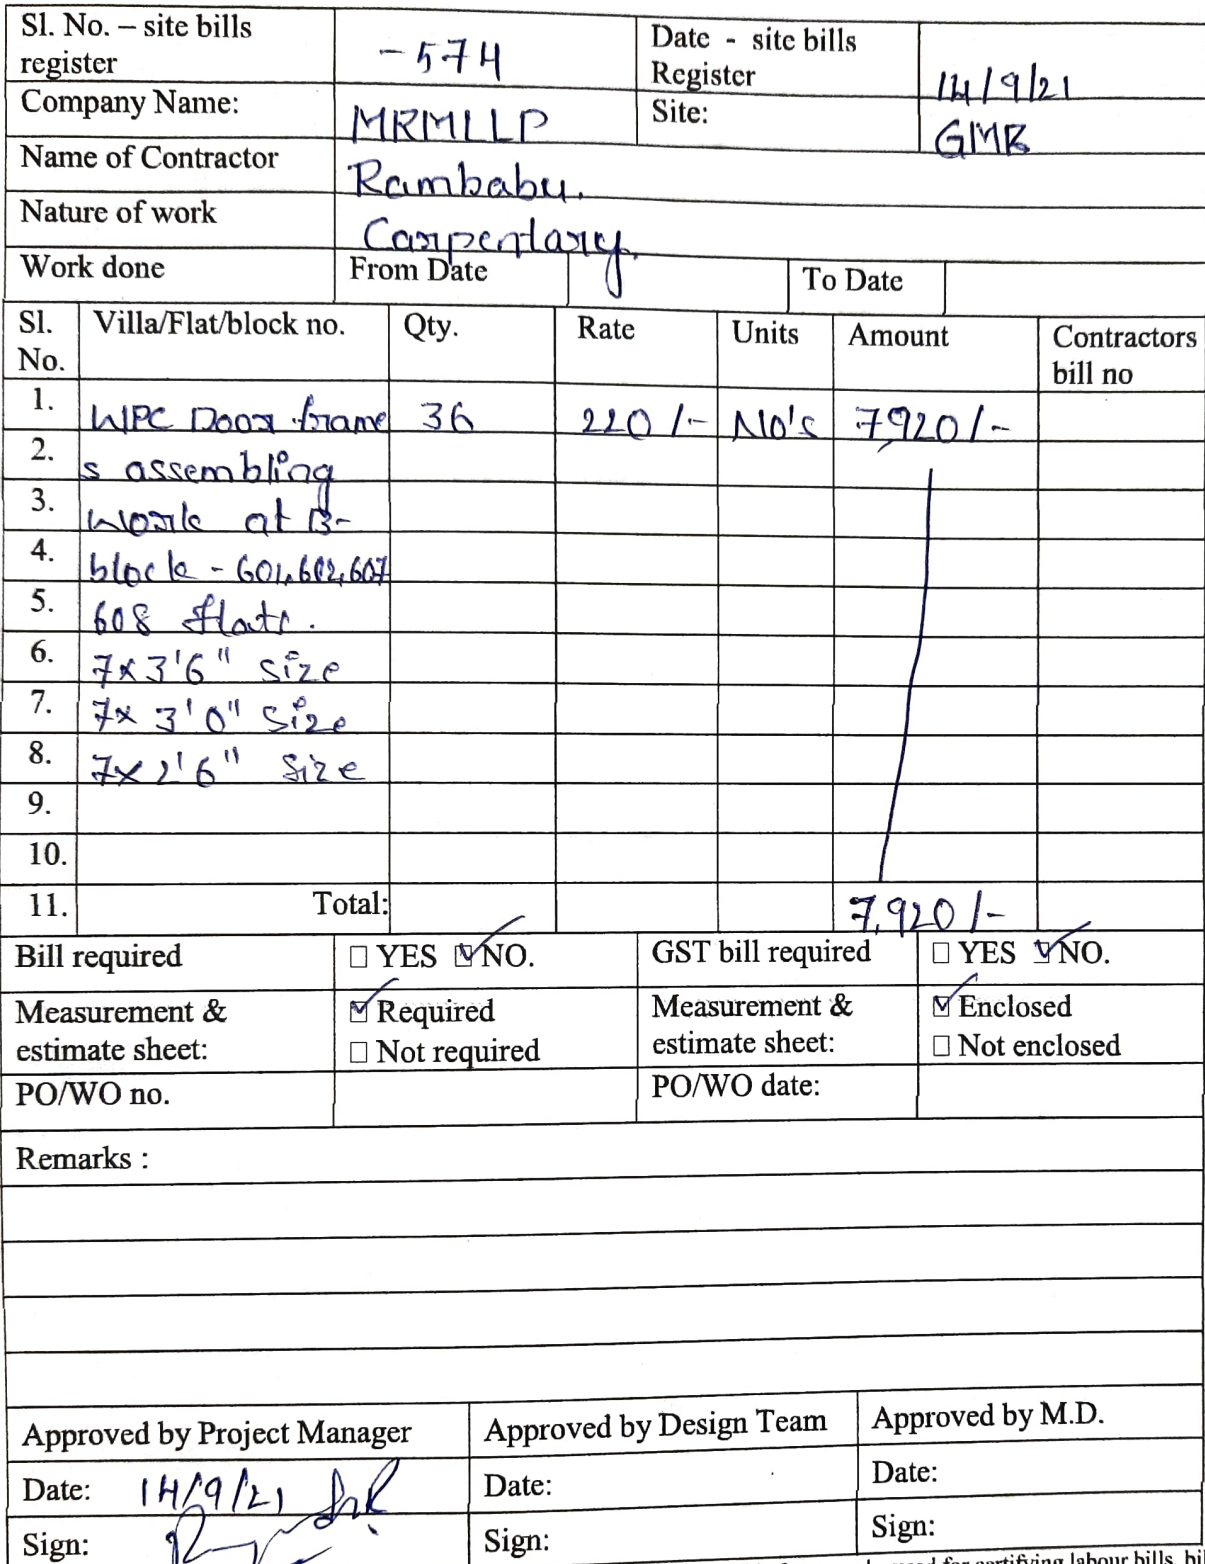 Sl. No. – site bills register -574 Date - site bills Register 14/9/21
Company Name: MRMLLP Site: GMR
Name of Contractor Rambabu.
Nature of work Carpentary
Work done From Date To Date
Sl. No. Villa/Flat/block no. Qty. Rate Units Amount Contractors bill no
1. WPC Door frame 36 220/- No's 7,920/-
2. s assembling
3. work at B-
4. block - 601,602,607
5. 608 flats.
6. 7x3'6" size
7. 7x 3'0" size
8. 7x2'6" size
9.
10.
11. Total: 7,920/-
Bill required □ YES ☑ NO. GST bill required □ YES ☑ NO.
Measurement & estimate sheet: ☑ Required □ Not required Measurement & estimate sheet: ☑ Enclosed □ Not enclosed
PO/WO no. PO/WO date:
Remarks :
Approved by Project Manager Approved by Design Team Approved by M.D.
Date: 14/9/21 Date: Date:
Sign: Sign: Sign:
for certifying labour bills, bil